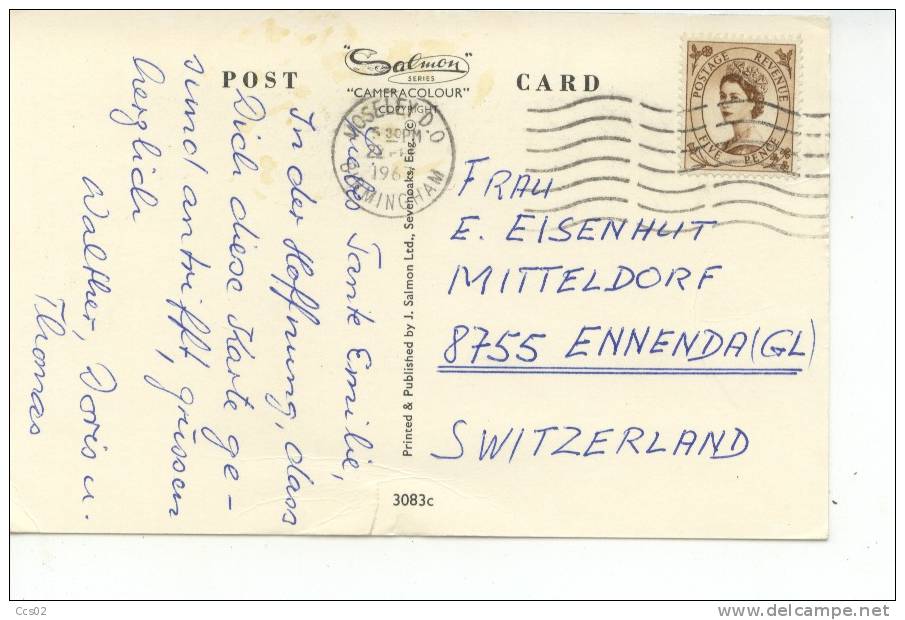 POST CARD
"Salmon"
SERIES
"CAMERACOLOUR"
COPYRIGHT
MOSELEY D.O
30 PM
196
BIRMINGHAM
POSTAGE REVENUE
FIVE PENCE
Liebes Tante Emilie,
In der Hoffnung, dass
Dich diese Karte ge-
sund antrifft, grüssen
herzlich
Walther, Doris u.
Thomas
Printed & Published by J. Salmon Ltd., Sevenoaks, Eng. ©
FRAU
E. EISENHUT
MITTELDORF
8755 ENNENDA (GL)
SWITZERLAND
3083c
Ccs02
www.delcampe.net